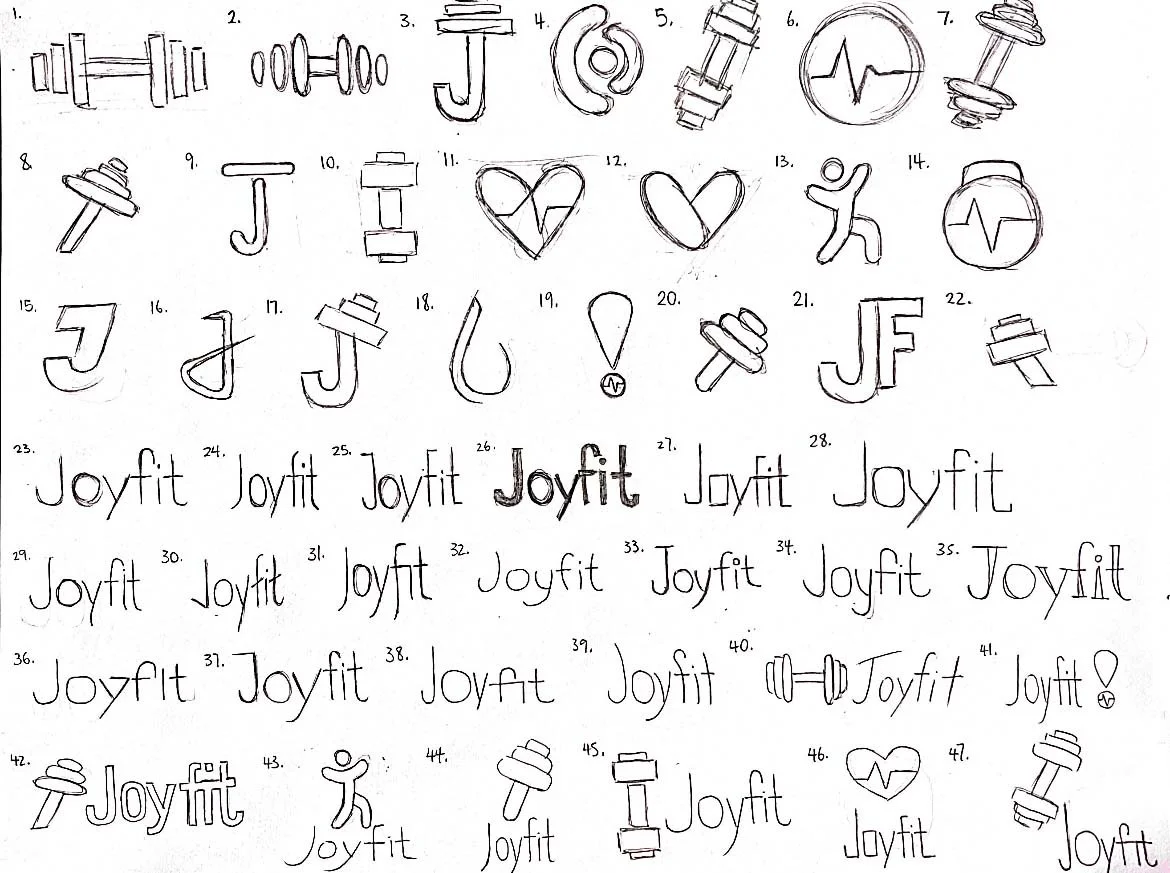 1. 2. 3. J 4. 5. 6. 7.
8. 9. J 10. 11. 12. 13. 14.
15. J 16. J 17. J 18. 19. ! 20. 21. JF 22.
23. Joyfit 24. Joyfit 25. Joyfit 26. Joyfit 27. Joyfit 28. Joyfit
29. Joyfit 30. Joyfit 31. Joyfit 32. Joyfit 33. Joyfit 34. Joyfit 35. Joyfit
36. Joyfit 37. Joyfit 38. Joyfit 39. Joyfit 40. Joyfit 41. Joyfit!
42. Joyfit 43. Joyfit 44. Joyfit 45. Joyfit 46. Joyfit 47. Joyfit